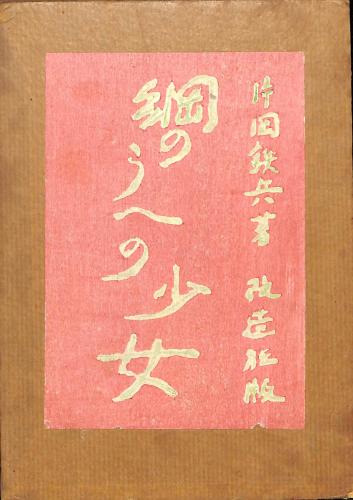 片岡鉄兵著 改造社版
綱のうへの少女